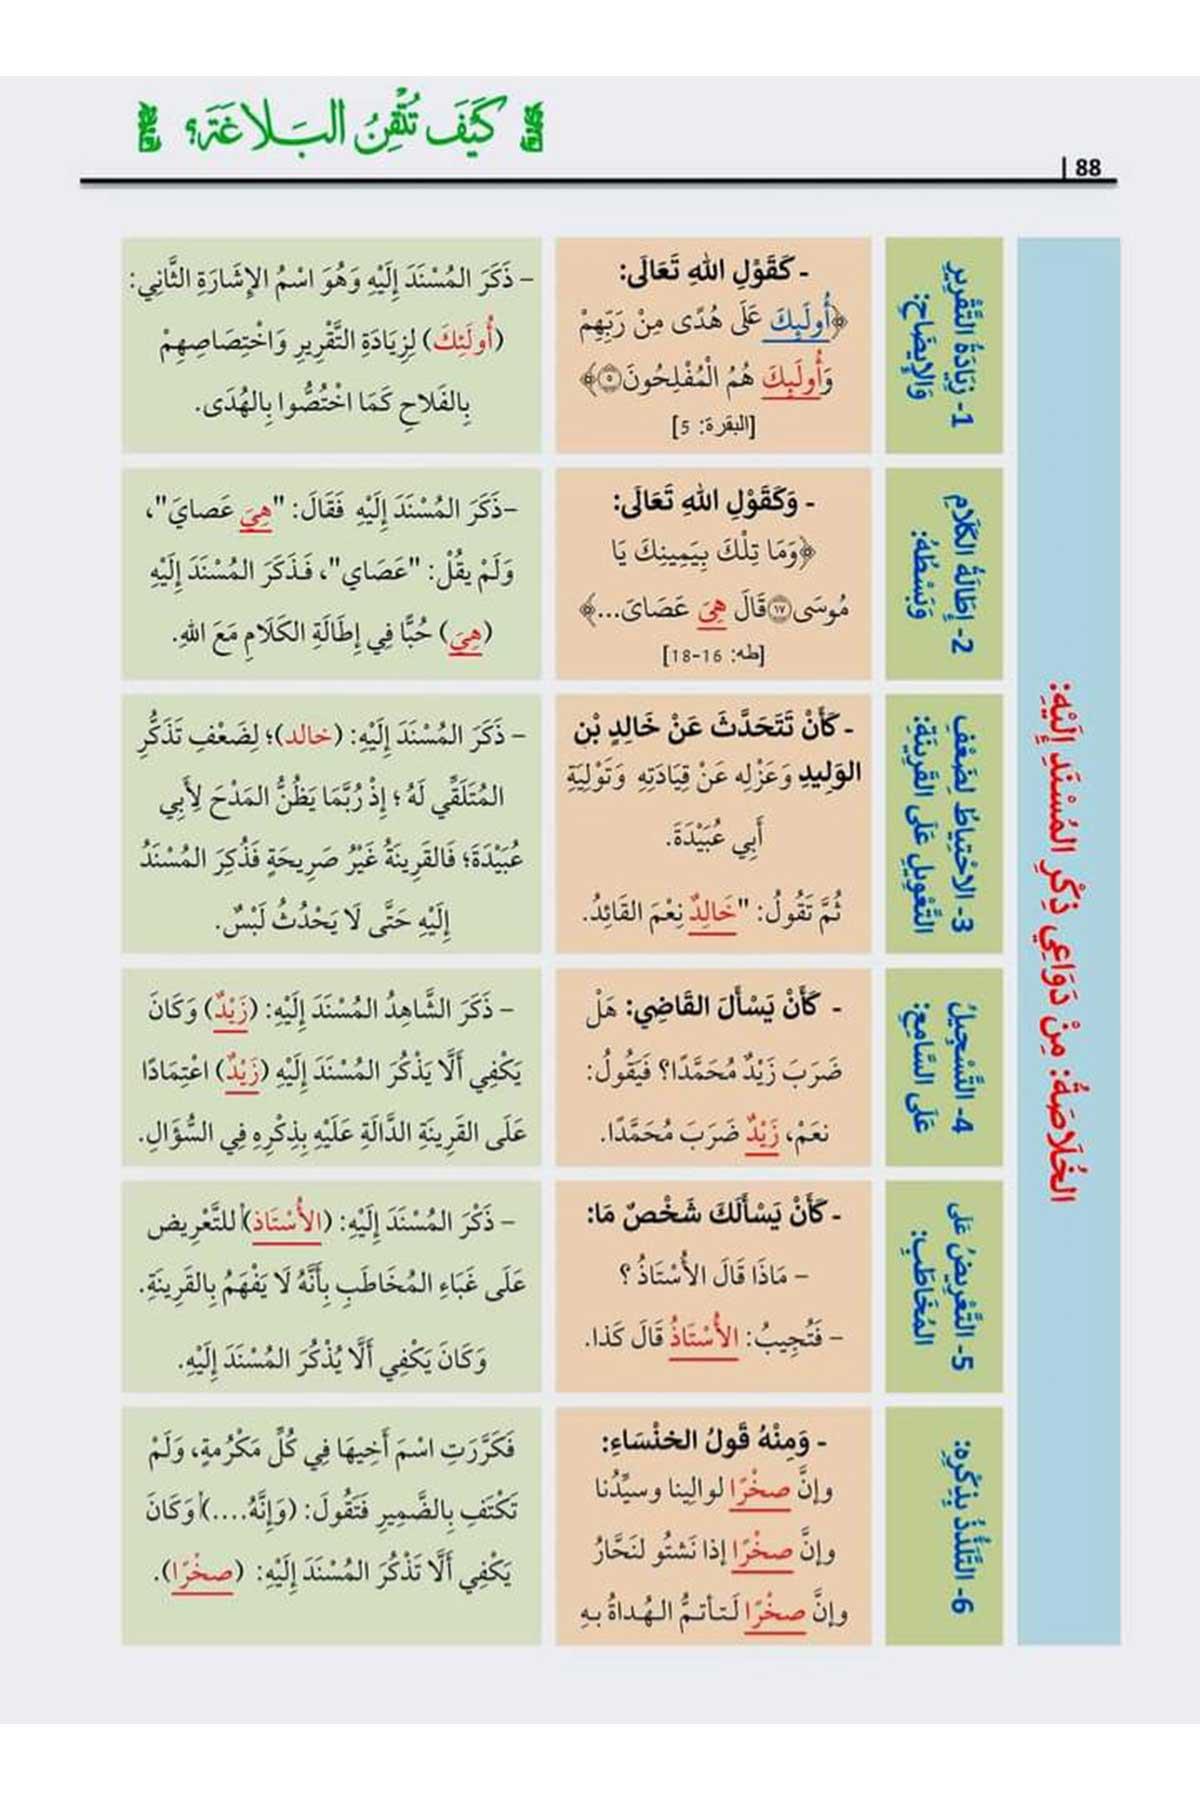 كَيْفَ تُتْقِنُ البَلَاغَةَ؟
88 |
الخُلَاصَةُ: مِنْ دَوَاعِي ذِكْرِ المُسْنَدِ إِلَيْهِ:
1- زِيَادَةُ التَّقْرِيرِ
وَالإِيضَاحِ:
- كَقَوْلِ اللهِ تَعَالَى:
﴿أُولَٰئِكَ عَلَى هُدًى مِنْ رَبِّهِمْ
وَأُولَٰئِكَ هُمُ الْمُفْلِحُونَ۝٥﴾
[البقرة: 5]
- ذَكَرَ المُسْنَدَ إِلَيْهِ وَهُوَ اسْمُ الإِشَارَةِ الثَّانِي:
(أُولَئِكَ) لِزِيَادَةِ التَّقْرِيرِ وَاخْتِصَاصِهِمْ
بِالفَلَاحِ كَمَا اخْتُصُّوا بِالهُدَى.
2- إِطَالَةُ الكَلَامِ
وَبَسْطُهُ:
- وَكَقَوْلِ اللهِ تَعَالَى:
﴿وَمَا تِلْكَ بِيَمِينِكَ يَا
مُوسَى۝١٧ قَالَ هِيَ عَصَايَ...﴾
[طه: 16-18]
-ذَكَرَ المُسْنَدَ إِلَيْهِ فَقَالَ: "هِيَ عَصايَ"،
وَلَمْ يقُلْ: "عَصَاي"، فَذَكَرَ المُسْنَدَ إِلَيْهِ
(هِيَ) حُبًّا فِي إِطَالَةِ الكَلَامِ مَعَ اللهِ.
3- الاحْتِيَاطُ لِضَعْفِ
التَّعْوِيلِ عَلَى القَرِينَةِ:
- كَأَنْ تَتَحَدَّثَ عَنْ خَالِدِ بْنِ
الوَلِيدِ وَعَزْلِه عَنْ قِيَادَتِهِ وَتَوْلِيَةِ
أَبِي عُبَيْدَةَ.
ثُمَّ تَقُولُ: "خَالِدٌ نِعْمَ القَائِدُ.
- ذَكَرَ المُسْنَدَ إِلَيْهِ: (خالد)؛ لِضَعْفِ تَذَكُّرِ
المُتَلَقِّي لَهُ ؛ إِذْ رُبَّمَا يَظُنُّ المَدْحَ لِأَبِي
عُبَيْدَةَ؛ فَالقَرِينَةُ غَيْرُ صَرِيحَةٍ فَذُكِرَ المُسْنَدُ
إِلَيْهِ حَتَّى لَا يَحْدُثُ لَبْسٌ.
4- التَّسْجِيلُ
عَلَى السَّامِعِ:
- كَأَنْ يَسْأَلَ القَاضِي: هَلْ
ضَرَبَ زَيْدٌ مُحَمَّدًا؟ فَيَقُولُ:
نعَمْ، زَيْدٌ ضَرَبَ مُحَمَّدًا.
- ذَكَرَ الشَّاهِدُ المُسْنَدَ إِلَيْهِ: (زَيْدٌ) وَكَانَ
يَكْفِي أَلَّا يَذْكُرَ المُسْنَدَ إِلَيْهِ (زَيْدٌ) اعْتِمَادًا
عَلَى القَرِينَةِ الدَّالَةِ عَلَيْهِ بِذِكْرِهِ فِي السُّؤَالِ.
5- التَّعْرِيضُ عَلَى
المُخَاطَبِ:
- كَأَنْ يَسْأَلَكَ شَخْصٌ مَا:
- مَاذَا قَالَ الأُسْتَاذُ ؟
- فَتُجِيبُ: الأُسْتَاذُ قَالَ كَذا.
- ذَكْرَ المُسْنَدَ إِلَيْهِ: (الأُسْتَاذ) للتَّعْرِيض
عَلَى غَبَاءِ المُخَاطَبِ بِأَنَّهُ لَا يَفْهَمُ بِالقَرِينَةِ.
وَكَانَ يَكْفِي أَلَّا يُذْكُرَ المُسْنَدَ إِلَيْهِ.
6- التَّلَذُّذُ بِذِكْرِهِ:
- وَمِنْهُ قَولُ الخنْسَاءِ:
وإنَّ صخْرًا لوالينا وسيِّدُنا
وإنَّ صخْرًا إذا نَشتُو لنَحَّارُ
وإنَّ صخْرًا لَتأتمُّ الهُداةُ بهِ
فَكَرَّرَتِ اسْمَ أَخِيهَا فِي كُلِّ مَكْرُمةٍ، وَلَمْ
تَكْتَفِ بِالضَّمِيرِ فَتَقُولَ: (وَإِنَّهُ....) وَكَانَ
يَكْفِي أَلَّا تَذْكُرَ المُسْنَدَ إِلَيْهِ: (صخْرًا).